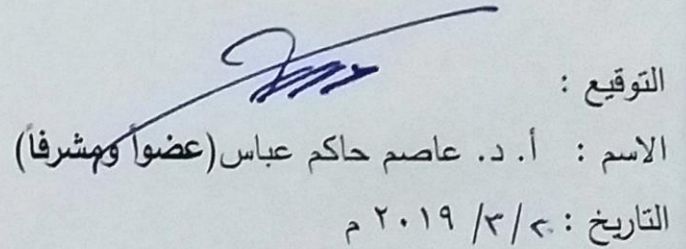 التوقيع :
الاسم : أ. د. عاصم حاكم عباس (عضواً ومشرفاً)
التاريخ : ٢ / ٣ / ٢٠١٩ م